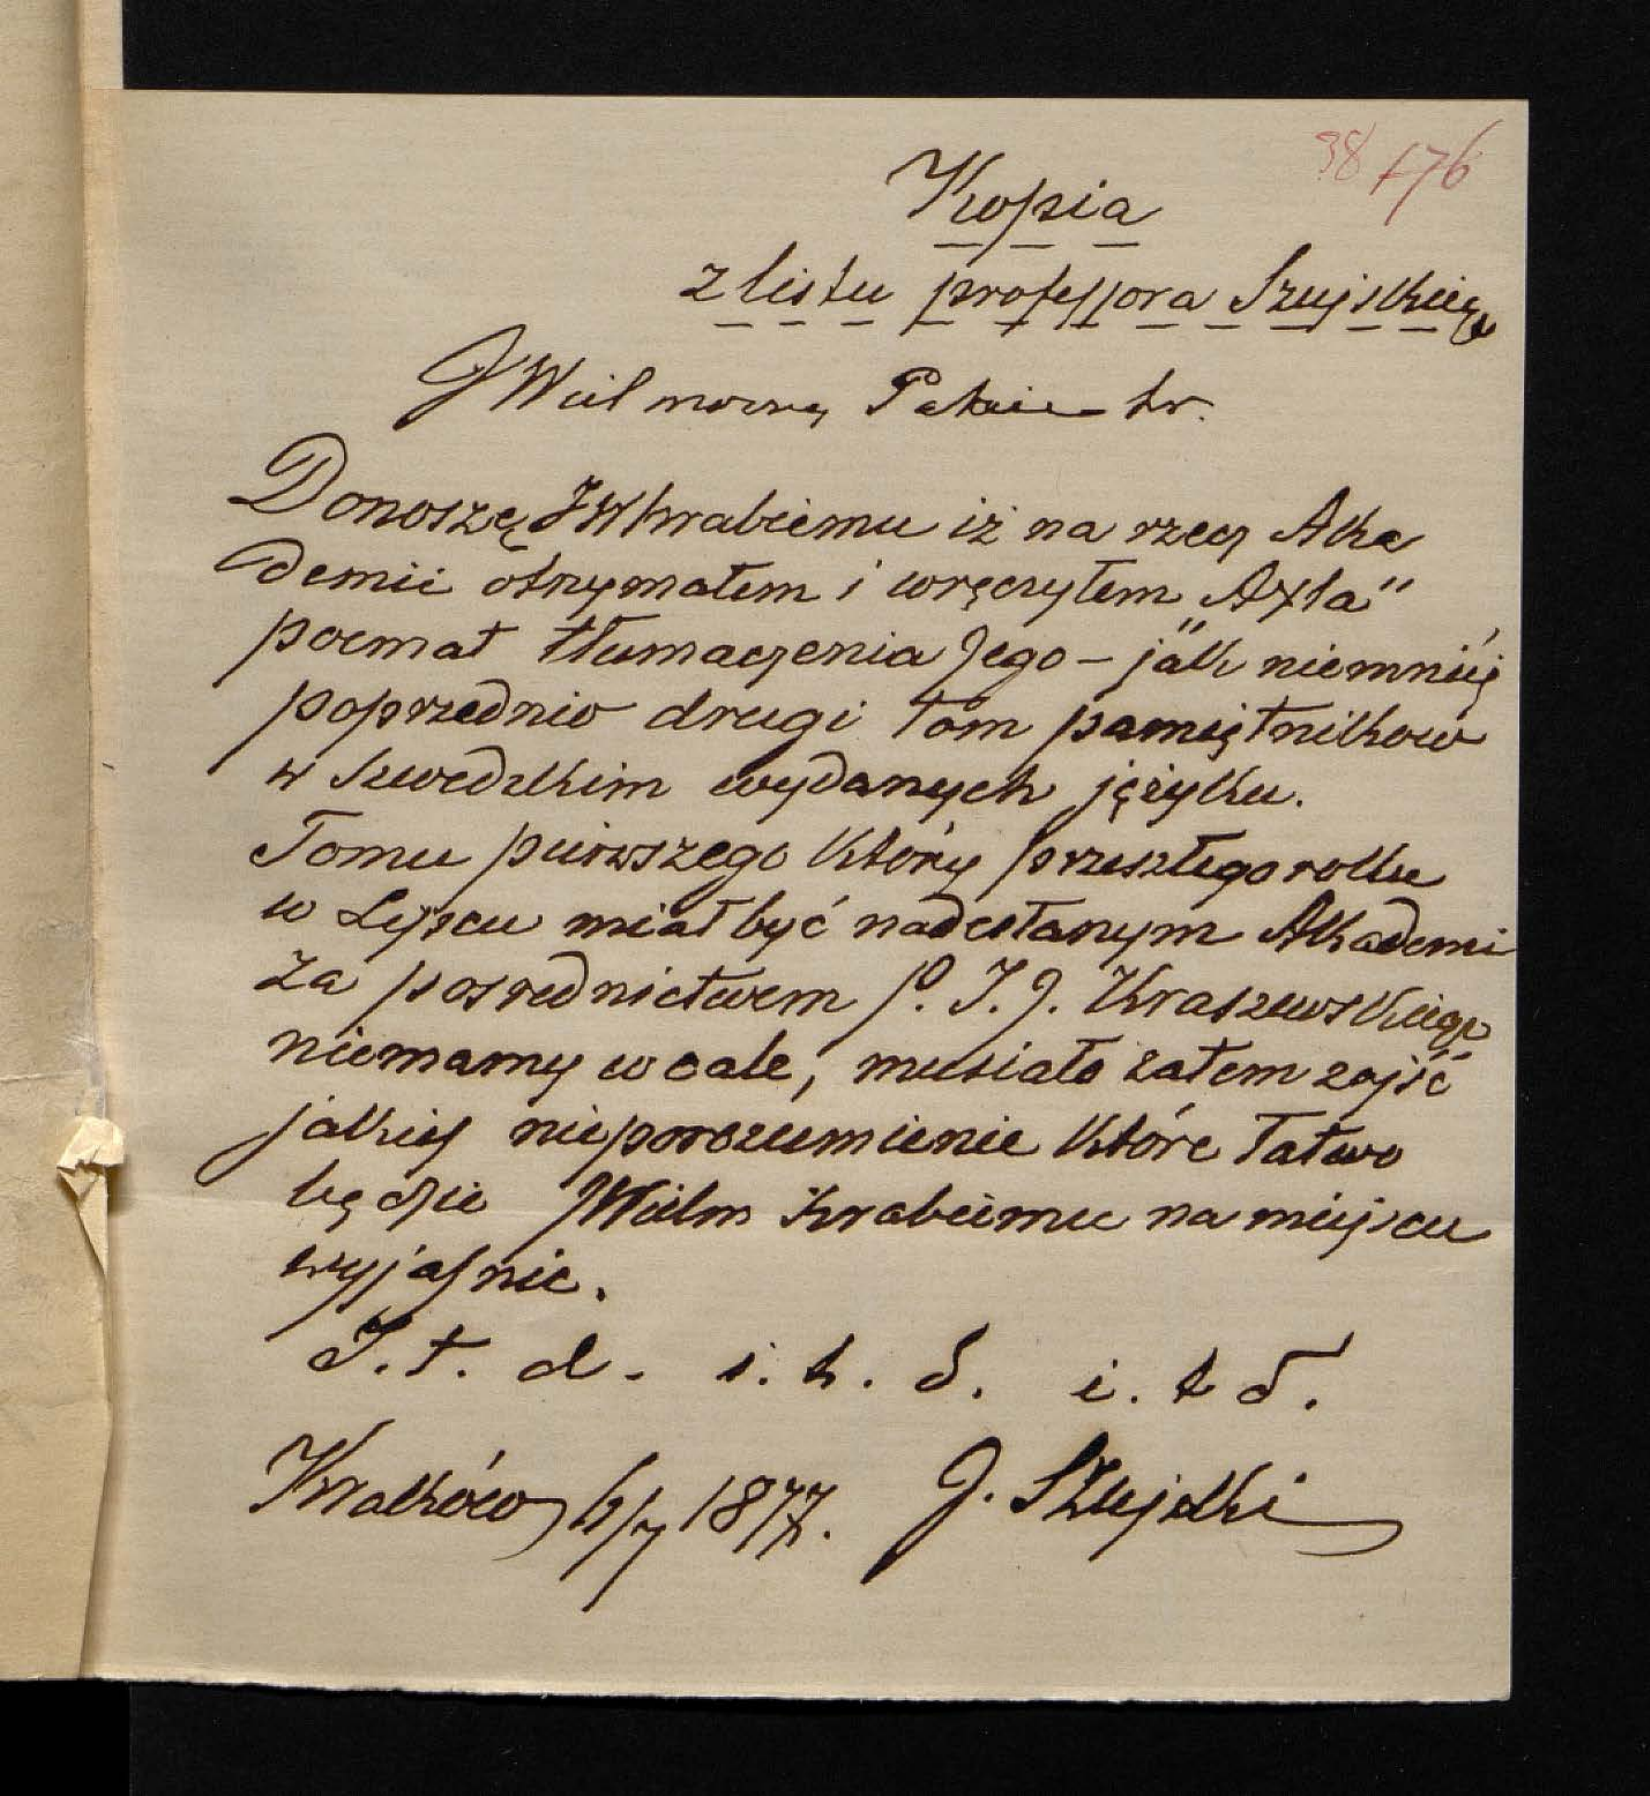 38 176
Kopia
z listu professora Szujskiego
JWielmożny Panie hr.
Donoszę JWhrabiemu iż na rzecz Aka
demii otrzymałem i wręczyłem „Axla"
poemat tłumaczenia Jego – jak niemniéj
poprzednio drugi tom pamiętników
w szwedzkim wydanych języku.
Tomu pierwszego który przeszłego roku
w Lipscu miał być nadesłanym Akademi
za posrednictwem p. I. J. Kraszewskiego
niemamy wcale, musiało zatem zajść
jakieś nieporozumienie które łatwo
będzie JWielm hrabiemu na miejscu
wyjaśnic.
I. t. d. i. t. d. i. t d.
Kraków 6/7 1877. J. Szujski